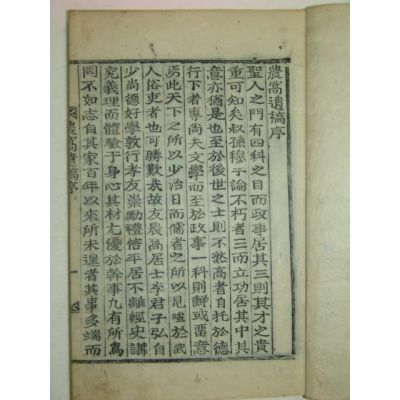 農窩遺稿序
聖人之門有四科之目而政事居其三則其才之貴
重可知矣叔孫穆子論不朽者三而立功居其中其
意亦猶是也至於後世之士則不然高者自托於德
行下者專尚夫文學而至於政事一科則鮮或留意
焉此天下之所以少治日而儒者之所以見嗤於武
人俗吏者也可勝歎我故友農窩居士李君子弘自
少尚德好學敦行孝友崇勵禮偕平居不離經史講
究義理而體驗于身心其材尤優於幹事凡有所爲
罔不如志自其家百年以來所未遑者其事多端而
農窩遺稿序 一